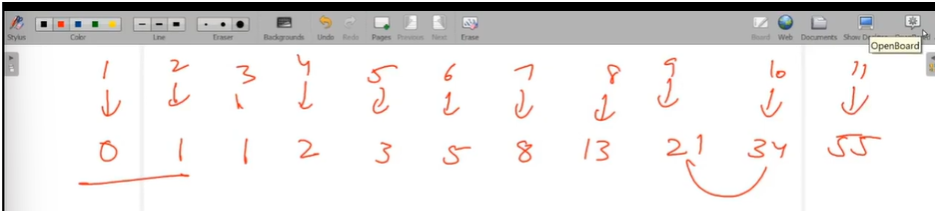 Stylus Color Line Eraser Backgrounds Undo Redo Pages Previous Next Erase Board Web Documents Show
OpenBoard
1 2 3 4 5 6 7 8 9 10 11
0 1 1 2 3 5 8 13 21 34 55